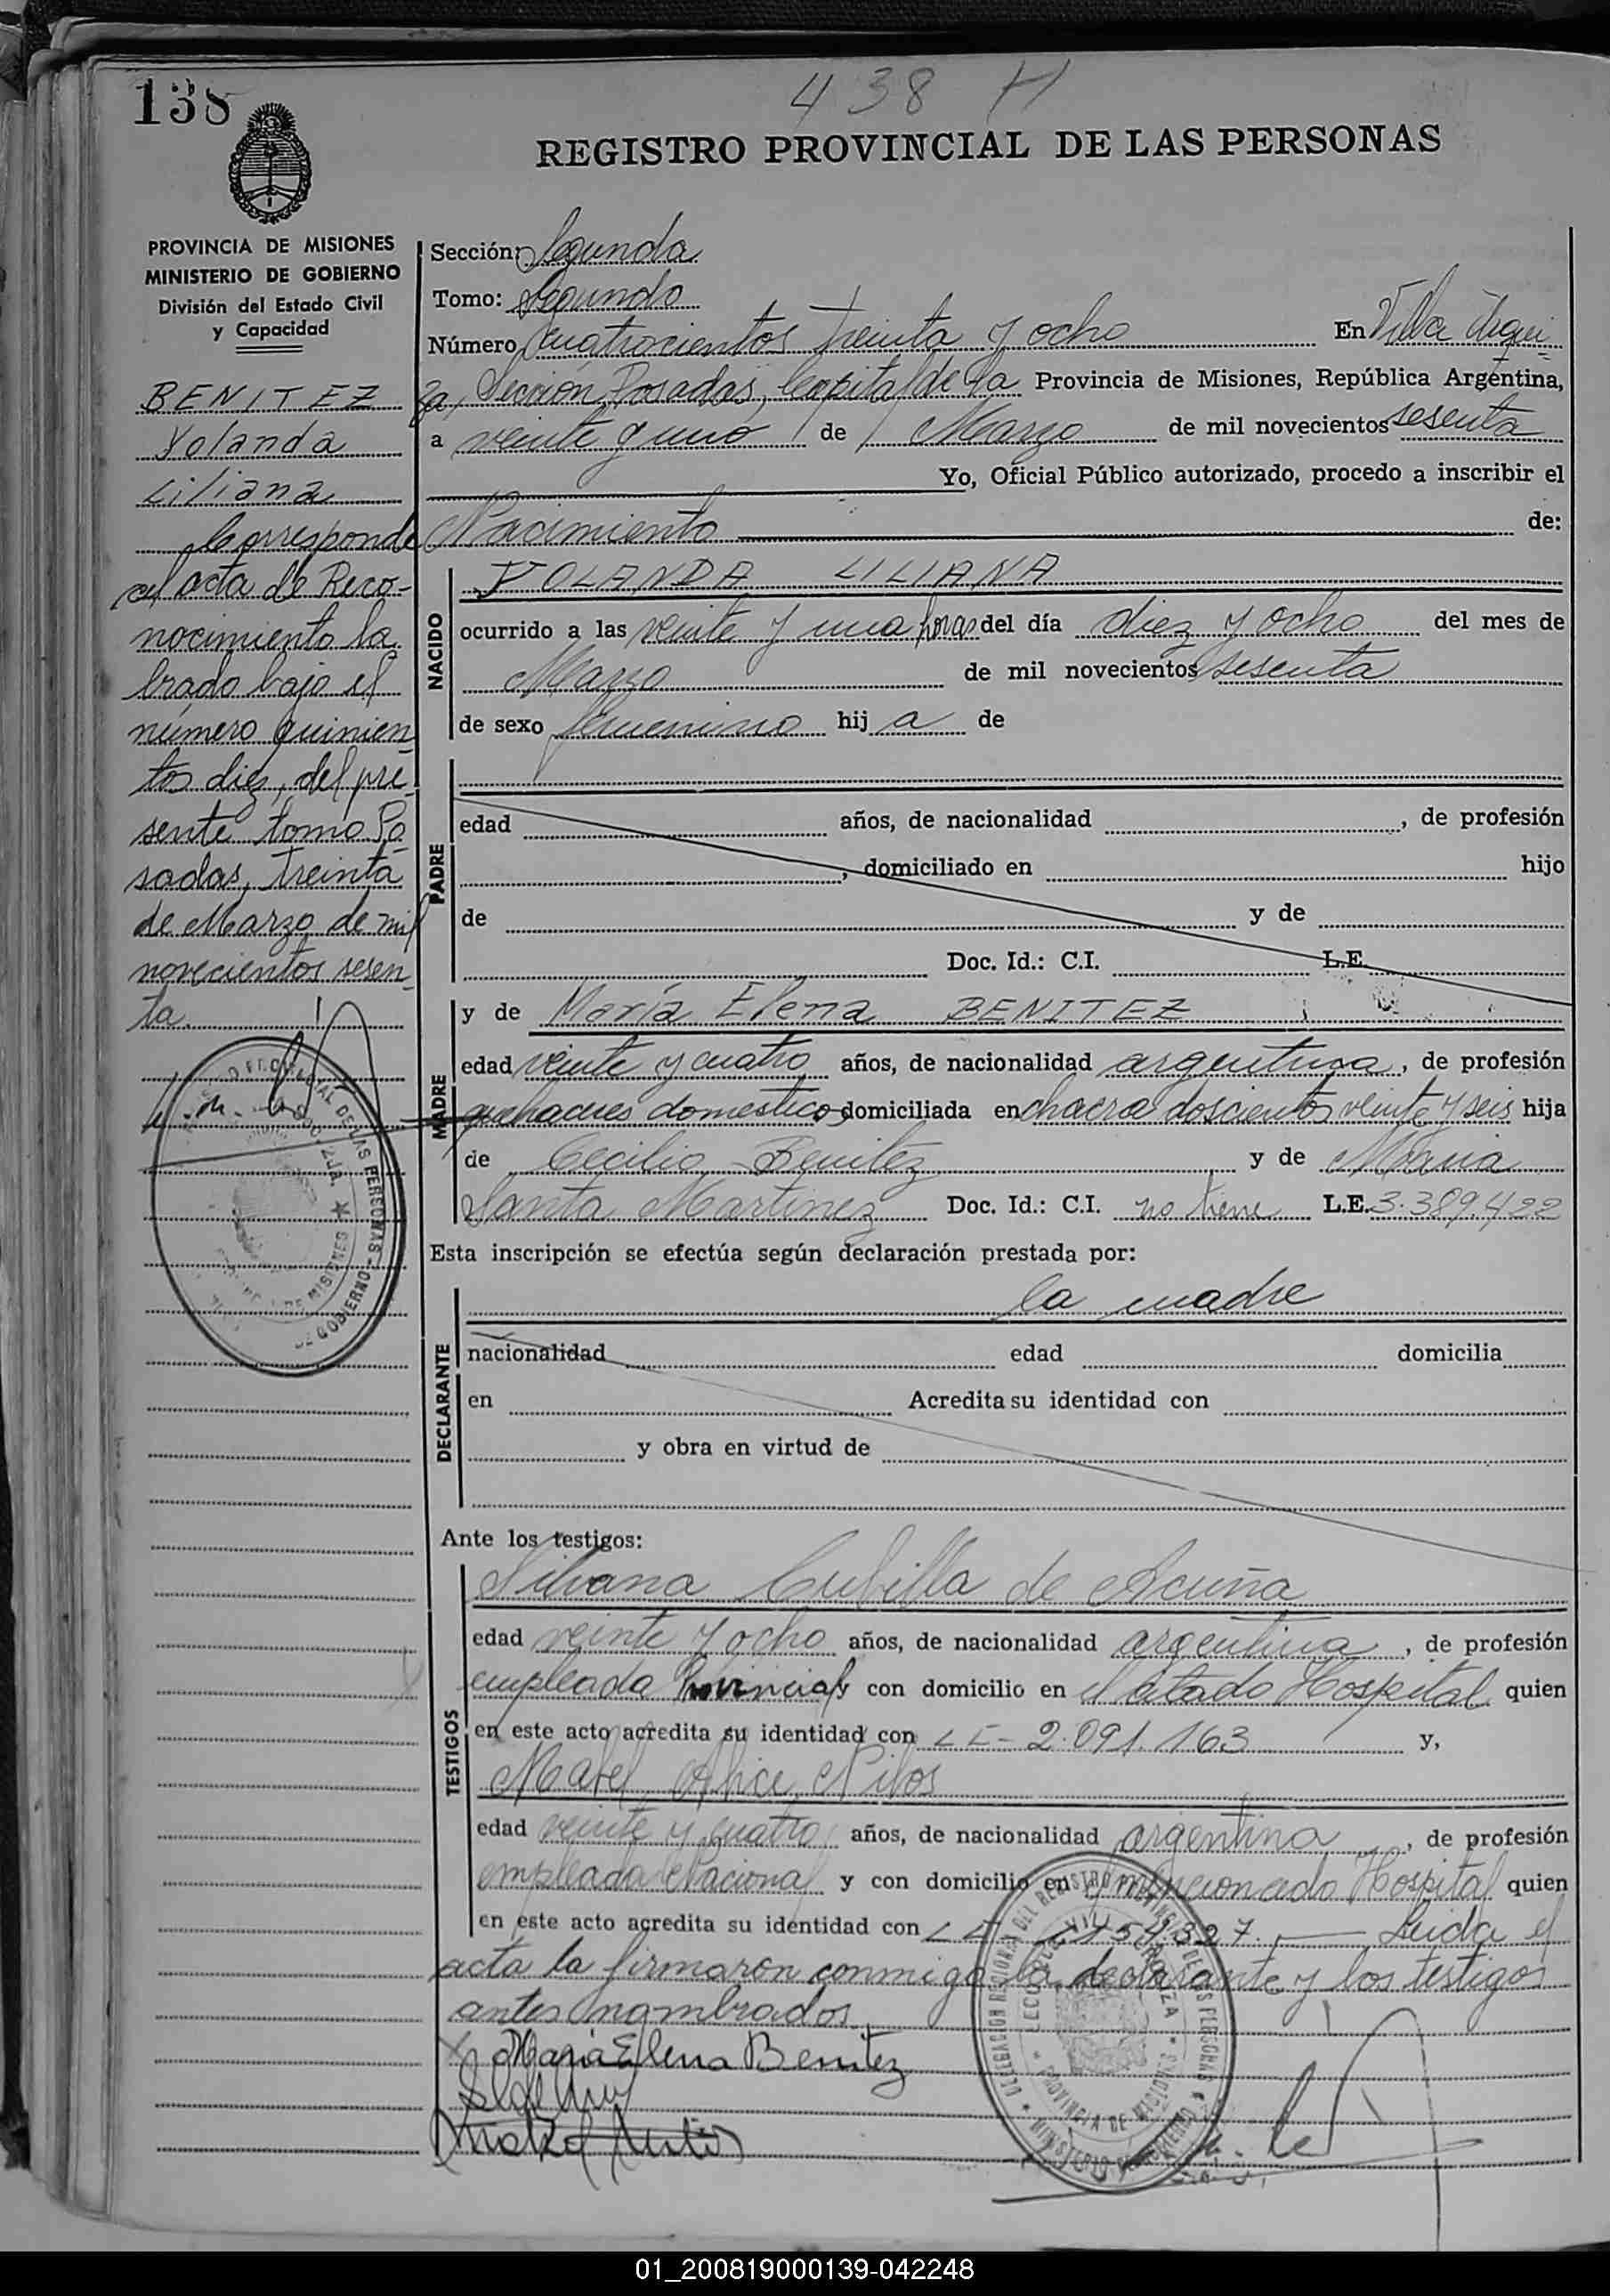 138
438 H
REGISTRO PROVINCIAL DE LAS PERSONAS
PROVINCIA DE MISIONES
MINISTERIO DE GOBIERNO
División del Estado Civil
y Capacidad
BENITEZ
Yolanda
Liliana
Corresponde
al acta de Reco-
nocimiento la
brado bajo el
número quinien
tos diez, del pre
sente tomo Po
sadas, treinta
de Marzo de mil
novecientos sesen
ta.
Sección: Segunda
Tomo: Segundo
Número cuatrocientos treinta y ocho En Villa Urqui-
za, Sección Posadas, Capital de la Provincia de Misiones, República Argentina,
a veinte y uno de Marzo de mil novecientos sesenta
Yo, Oficial Público autorizado, procedo a inscribir el
Nacimiento de:
NACIDO
YOLANDA LILIANA
ocurrido a las veinte y una horas del día diez y ocho del mes de
Marzo de mil novecientos sesenta
de sexo femenino hij a de
PADRE
edad años, de nacionalidad , de profesión
, domiciliado en hijo
de y de
Doc. Id.: C.I. L.E.
MADRE
y de María Elena BENITEZ
edad veinte y cuatro años, de nacionalidad argentina, de profesión
quehaceres domesticos domiciliada en chacra doscientos veinte y seis hija
de Cecilio Benitez y de María
Santa Martinez Doc. Id.: C.I. no tiene L.E. 3.389.422
Esta inscripción se efectúa según declaración prestada por:
DECLARANTE
la madre
nacionalidad edad domicilia
en Acredita su identidad con
y obra en virtud de
Ante los testigos:
TESTIGOS
Silvana Cubilla de Acuña
edad veinte y ocho años, de nacionalidad argentina, de profesión
empleada Provincial y con domicilio en el citado Hospital quien
en este acto acredita su identidad con L E - 2.091.163 y,
Mabel Alice
edad veinte y cuatro años, de nacionalidad argentina, de profesión
empleada Nacional y con domicilio en el mencionado Hospital quien
en este acto acredita su identidad con L E Leida el
acta la firmaron conmigo la declarante y los testigos
antes nombrados.
Maria Elena Benitez
DELEGACION REGIONAL DEL REGISTRO PROVINCIAL DE LAS PERSONAS
PROVINCIA DE MISIONES
MINISTERIO DE GOBIERNO
01_200819000139-042248